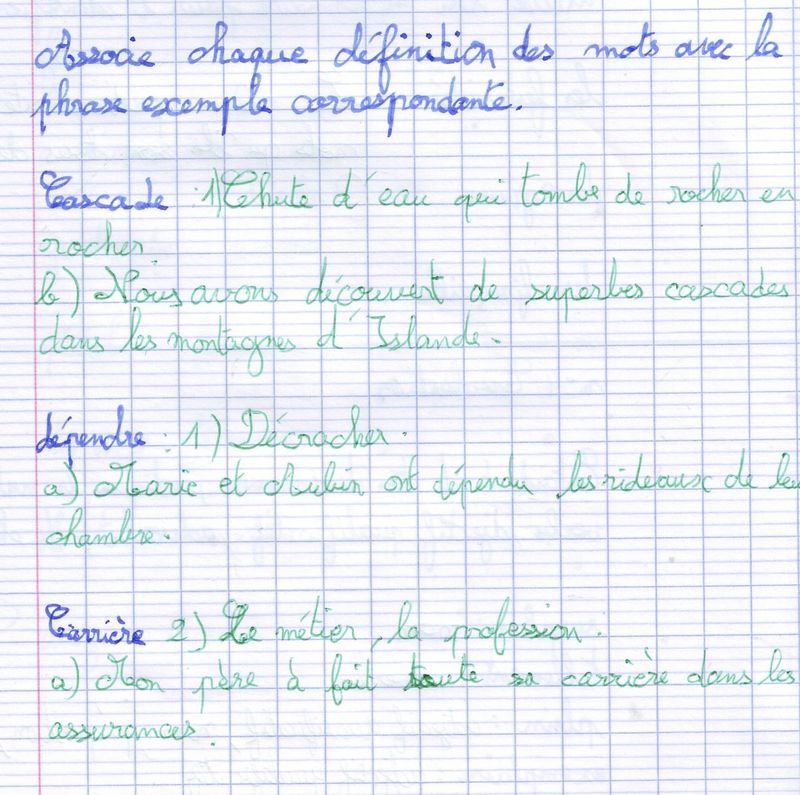 Associe chaque définition des mots avec la
phrase exemple correspondante.
Cascade : 1) Chute d'eau qui tombe de rocher en
rocher.
b) Nous avons découvert de superbes cascades
dans les montagnes d'Islande.
dépendre : 1) Décrocher.
a) Marie et Aubin ont dépendu les rideaux de la
chambre.
Carrière 2) Le métier, la profession.
a) Mon père à fait toute sa carrière dans les
assurances.